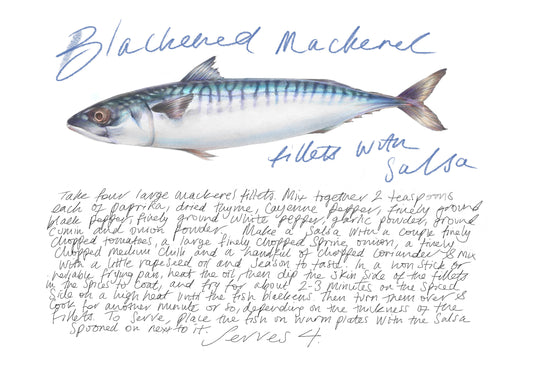 Blackened Mackerel
fillets with
Salsa
Take four large mackerel fillets. Mix together 2 teaspoons
each of paprika, dried thyme, cayenne pepper, finely ground
black pepper, finely ground white pepper, garlic powder, ground
cumin and onion powder. Make a salsa with a couple finely
chopped tomatoes, a large finely chopped spring onion, a finely
chopped medium chilli and a handful of chopped coriander & mix
with a little rapeseed oil and season to taste. In a non stick or
reliable frying pan, heat the oil then dip the skin side of the fillets
in the spices to coat, and fry for about 2-3 minutes on the spiced
side on a high heat until the fish blackens. Then turn them over &
cook for another minute or so, depending on the thickness of the
fillets. To serve, place the fish on warm plates with the salsa
spooned on next to it.
Serves 4.